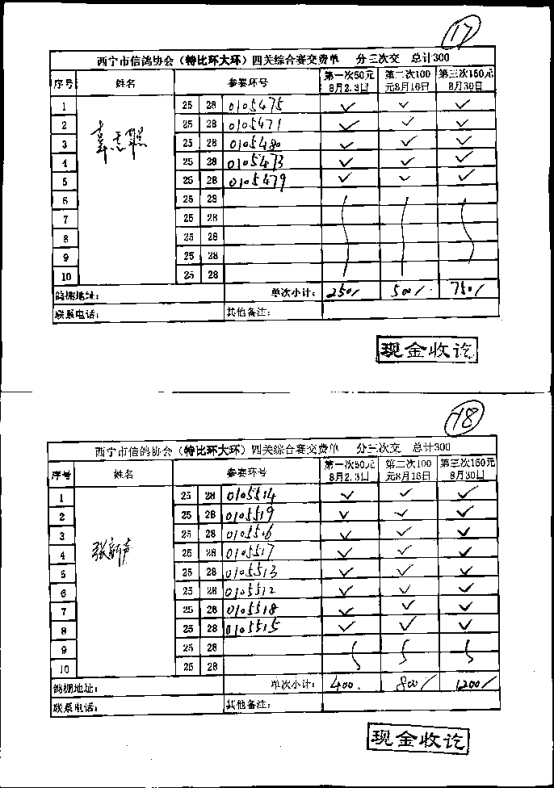 17
西宁市信鸽协会（特比环大环）四关综合赛交费单 分三次交 总计300
序号 姓名 参赛环号 第一次50元8月2.3日 第二次100元8月16日 第三次150元8月30日
1 25 28 0105475 ✓ ✓ ✓
2 25 28 0105471 ✓ ✓ ✓
3 25 28 0105480 ✓ ✓ ✓
4 25 28 0105473 ✓ ✓ ✓
5 25 28 0105479 ✓ ✓ ✓
6 25 28
7 25 28
8 25 28
9 25 28
10 25 28
鸽棚地址： 单次小计： 250/ 500/ 750/
联系电话： 其他备注：
现金收讫
18
西宁市信鸽协会（特比环大环）四关综合赛交费单 分三次交 总计300
序号 姓名 参赛环号 第一次50元8月2.3日 第二次100元8月16日 第三次150元8月30日
1 25 28 0105514 ✓ ✓ ✓
2 25 28 0105519 ✓ ✓ ✓
3 25 28 0105516 ✓ ✓ ✓
4 25 28 0105517 ✓ ✓ ✓
5 25 28 0105513 ✓ ✓ ✓
6 25 28 0105512 ✓ ✓ ✓
7 25 28 0105518 ✓ ✓ ✓
8 25 28 0105515 ✓ ✓ ✓
9 25 28
10 25 28
鸽棚地址： 单次小计： 400. 800/ 1200/
联系电话： 其他备注：
现金收讫